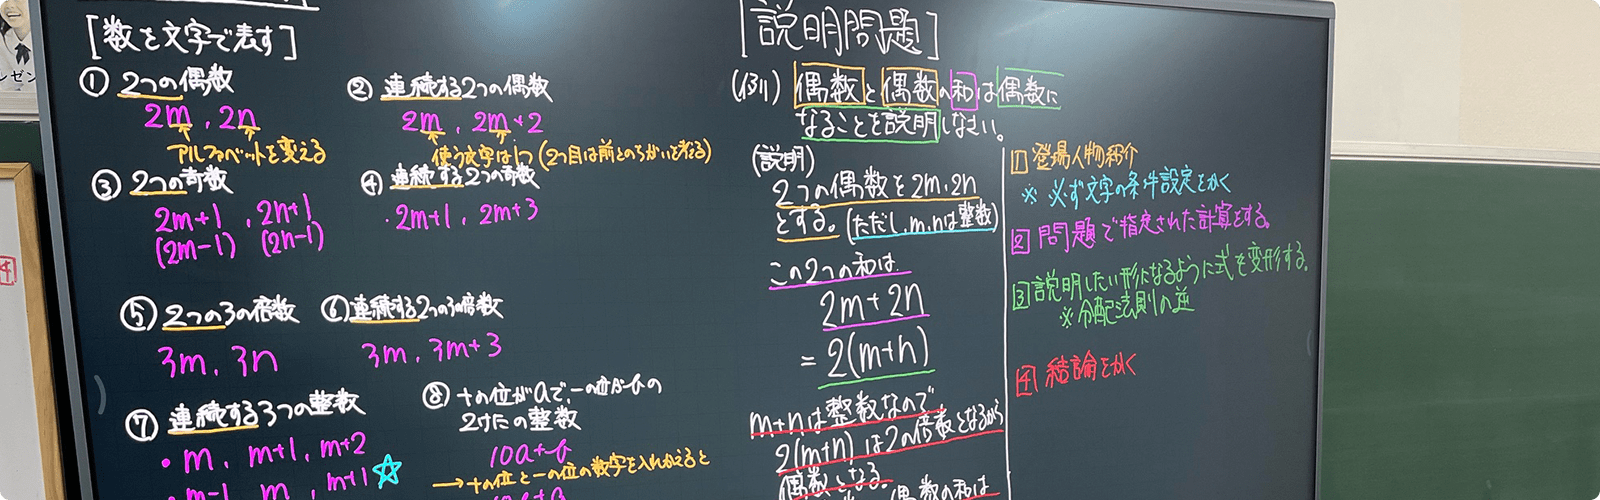 [数を文字で表す]
① 2つの偶数
2m , 2n
アルファベットを変える
② 連続する2つの偶数
2m , 2m+2
使う文字は1つ(2つ目は前とのちがいを考える)
③ 2つの奇数
2m+1 , 2n+1
(2m-1) (2n-1)
④ 連続する2つの奇数
・2m+1 , 2m+3
⑤ 2つの3の倍数
3m , 3n
⑥ 連続する2つの3の倍数
3m , 3m+3
⑦ 連続する3つの整数
・m , m+1 , m+2
・m-1 , m , m+1☆
⑧ 十の位がaで、一の位がbの
2けたの整数
10a+b
→十の位と一の位の数字を入れかえると
[説明問題]
(例) 偶数と偶数の和は偶数に
なることを説明しなさい。
(説明)
2つの偶数を2m,2n
とする。(ただし、m,nは整数)
この2つの和は、
2m+2n
=2(m+n)
m+nは整数なので
2(m+n)は2の倍数となるから
偶数となる。
偶数の和は
1 登場人物紹介
※ 必ず文字の条件設定をかく
2 問題で指定された計算をする。
3 説明したい形になるように式を変形する。
※分配法則の逆
4 結論をかく